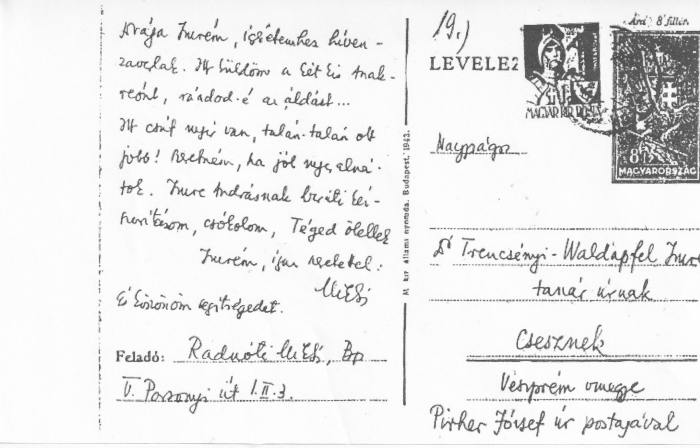 Drága Imrém, igéretemhez híven -
zavarlak. Itt küldöm a két kis Anak-
reónt, ráadod-é az áldást...
Itt csúf nyár van, talán-talán ott
jobb! Szeretném, ha jól nyaralná-
tok. Imre Andrásnak baráti kéz-
szorításom, csókolom, Téged ölellek
Imrém, igaz szeretettel:
Miklós
És köszönöm segítségedet.
Feladó: Radnóti Miklós, Bp
V. Pozsonyi út 1. II. 3.
M. kir. állami nyomda. Budapest, 1943.
19.)
LEVELEZ
Ára: 8 fillér
MAGYAR KIR. POSTA
8f
MAGYARORSZÁG
Nagyságos
Dr Trencsényi-Waldapfel Imre
tanár úrnak
Csesznek
Veszprém megye
Pirher József úr postájával